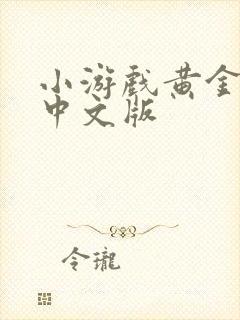 小游戏黄金
中文版
令瓏